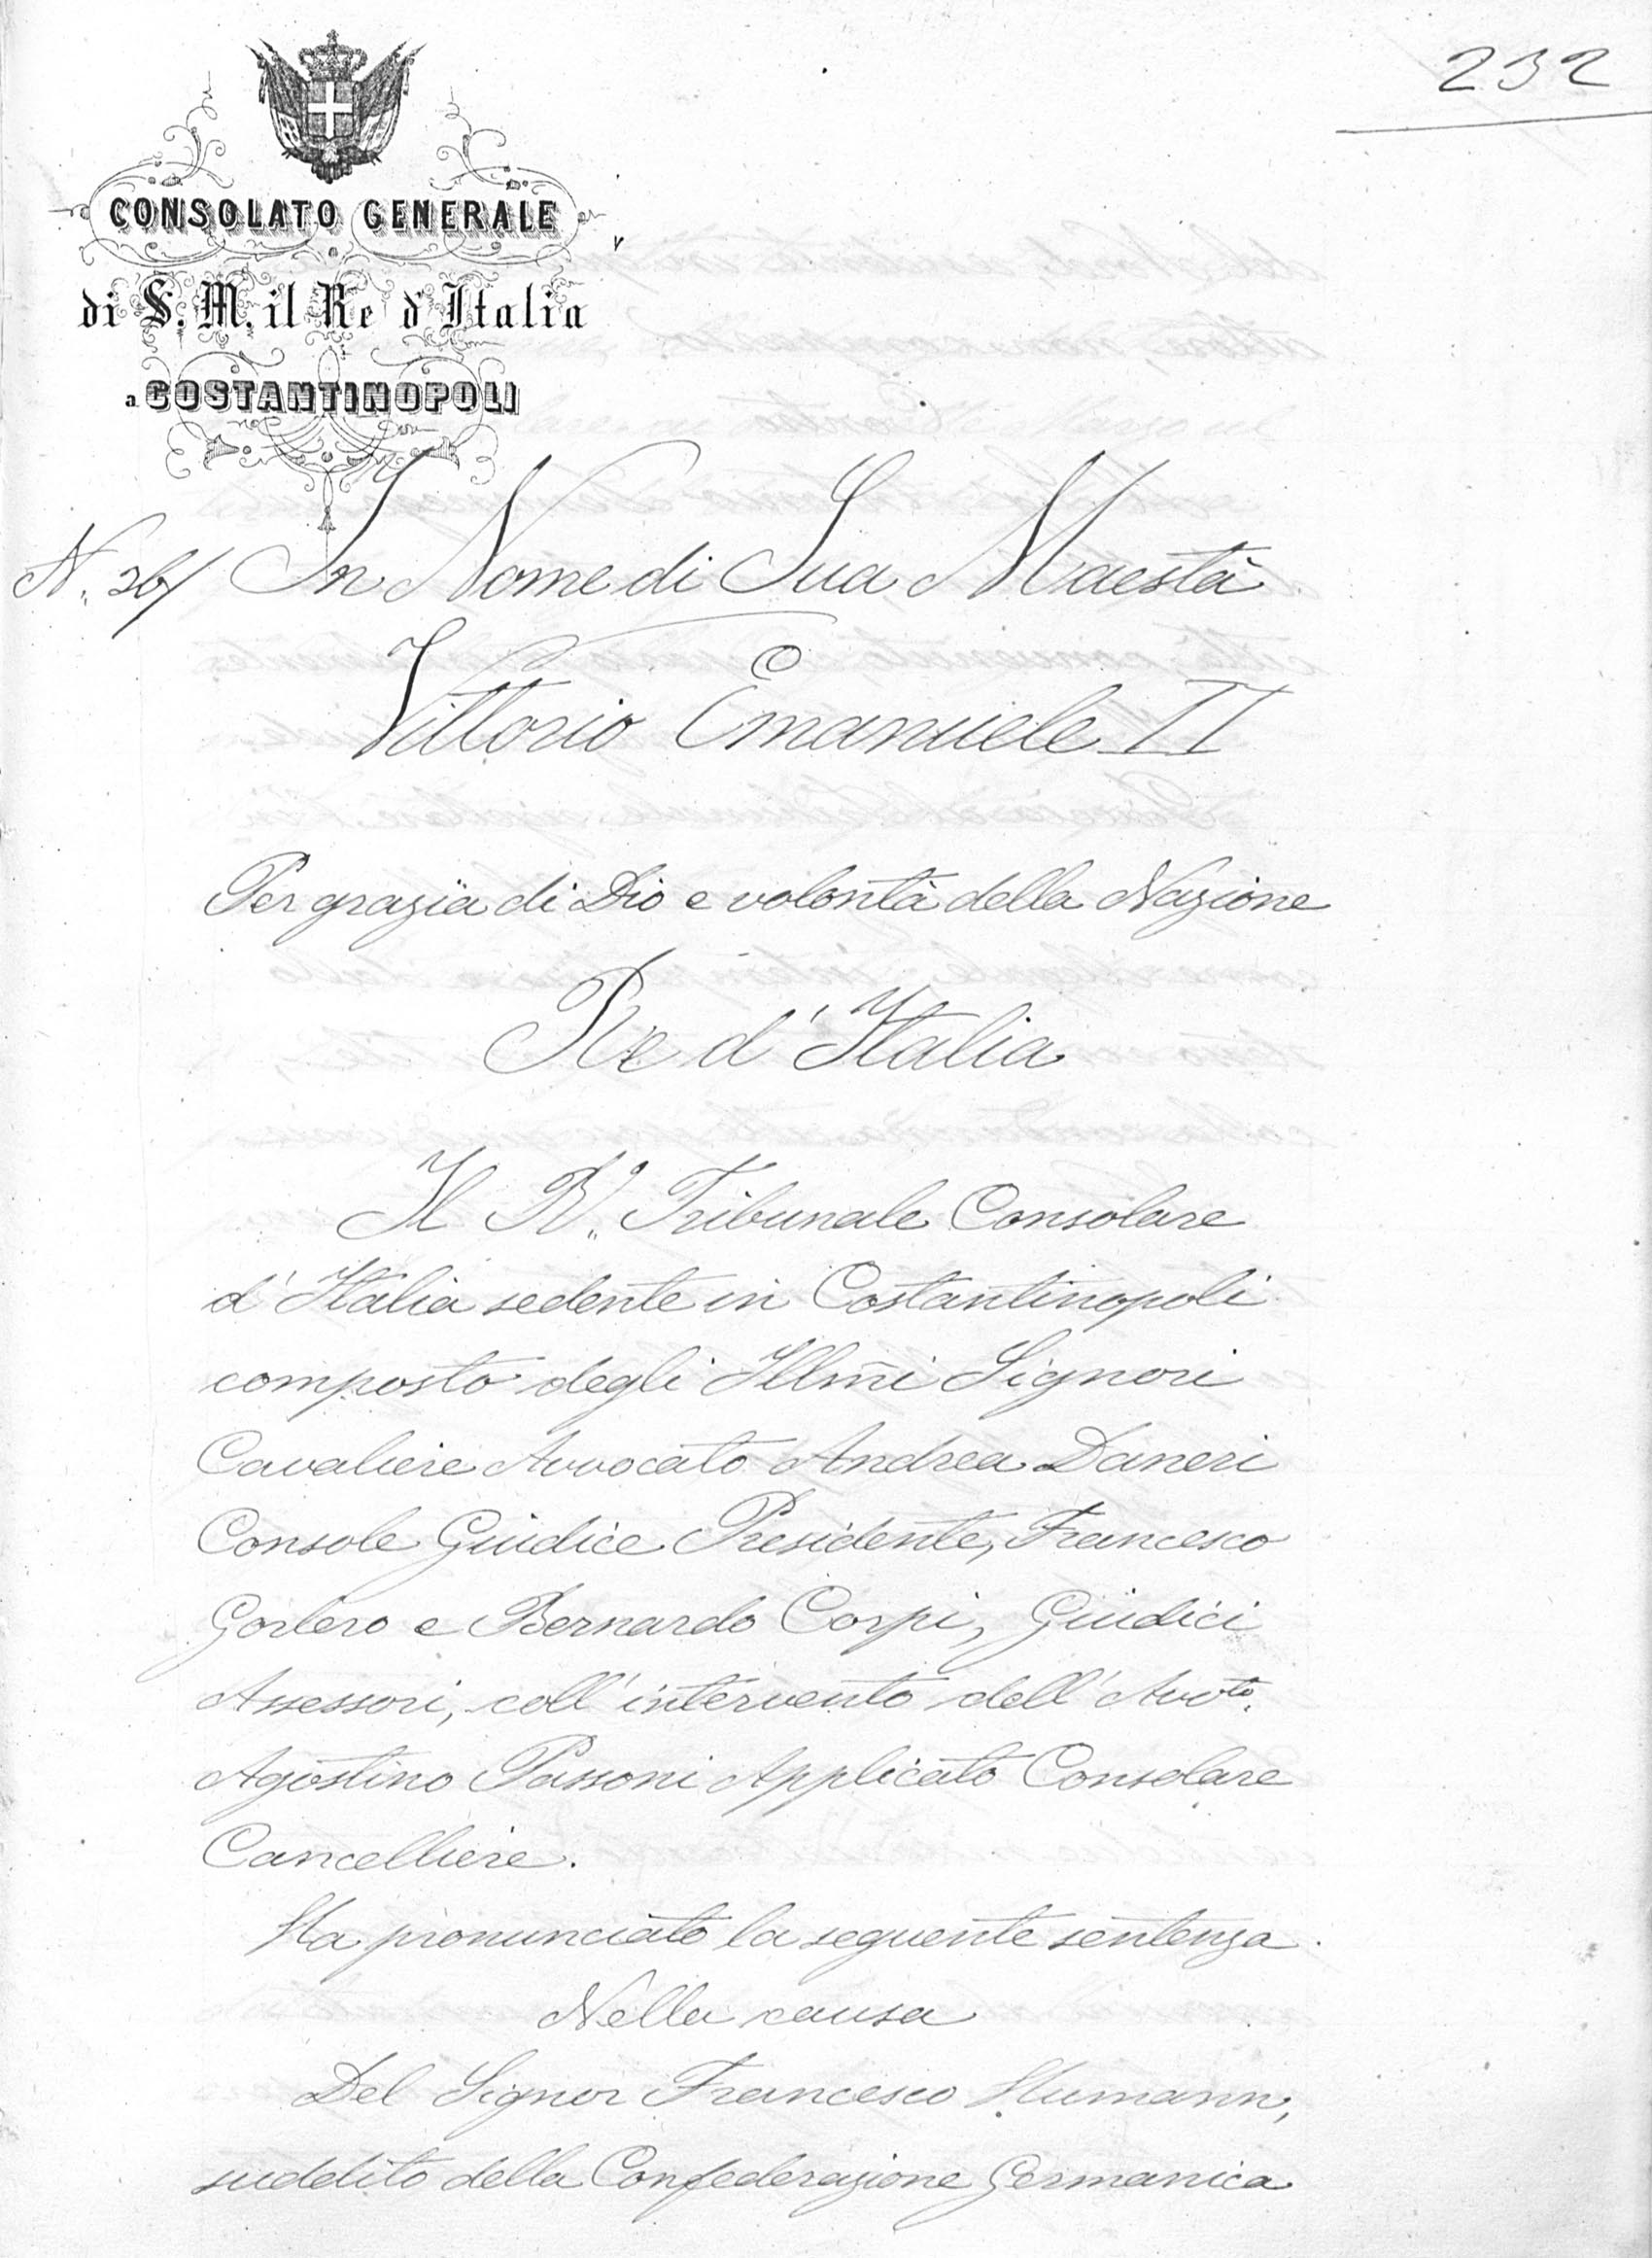 232
CONSOLATO GENERALE
di S. M. il Re d'Italia
a COSTANTINOPOLI
N. 26/ In Nome di Sua Maestà
Vittorio Emanuele II
Per grazia di Dio e volontà della Nazione
Re d'Italia
Il R. Tribunale Consolare
d'Italia sedente in Costantinopoli
composto degli Illmi Signori
Cavaliere Avvocato Andrea Daneri
Console Giudice Presidente, Francesco
Gorlero e Bernardo Corpi, Giudici
Assessori, coll'intervento dell'Avvto.
Agostino Passoni Applicato Consolare
Cancelliere.
Ha pronunciato la seguente sentenza.
Nella causa
Del Signor Francesco Humann,
suddito della Confederazione Germanica